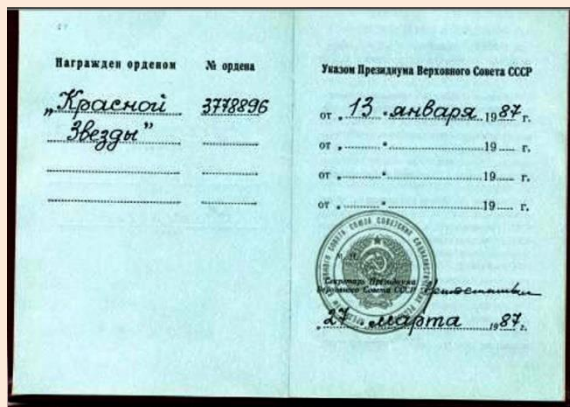 Награжден орденом № ордена
„Красной 3778896
Звезды”
Указом Президиума Верховного Совета СССР
от „ 13 “ января 1987 г.
от „ “ 19 г.
от „ “ 19 г.
от „ “ 19 г.
Секретарь Президиума
Верховного Совета СССР
„27 марта 1987 г.